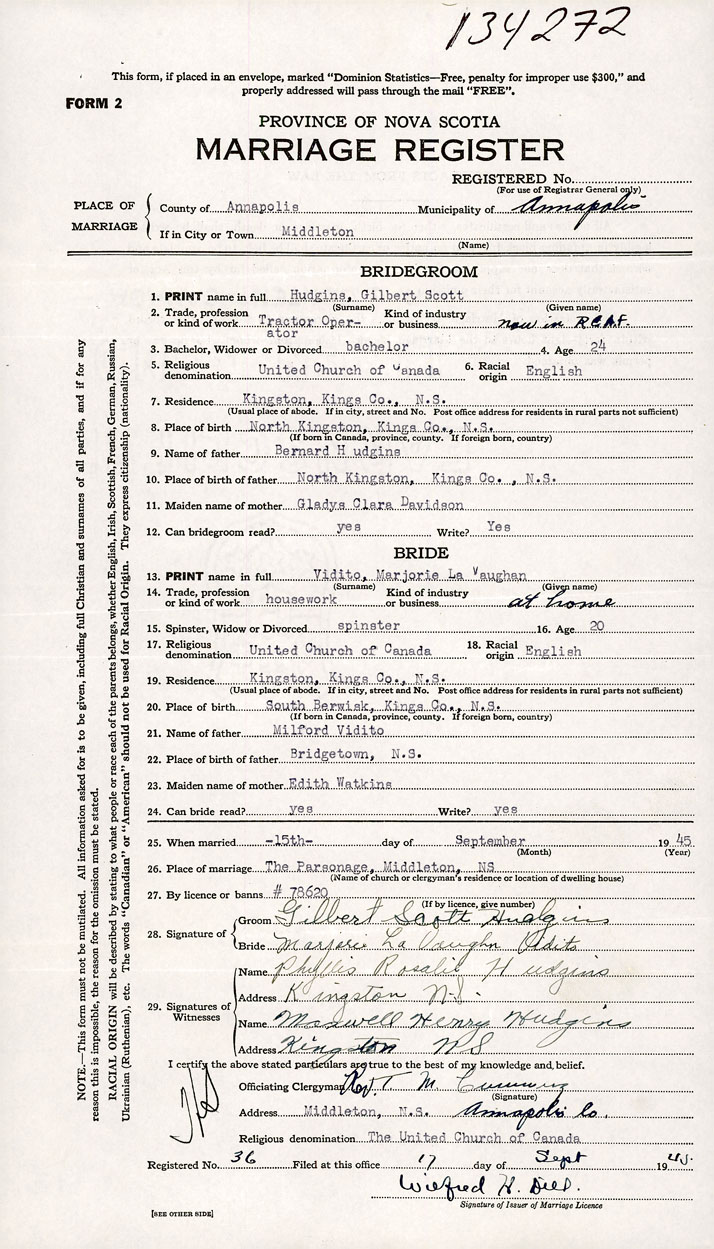 134272
This form, if placed in an envelope, marked "Dominion Statistics—Free, penalty for improper use $300," and
properly addressed will pass through the mail "FREE".
FORM 2
PROVINCE OF NOVA SCOTIA
MARRIAGE REGISTER
REGISTERED No.
(For use of Registrar General only)
PLACE OF MARRIAGE
County of Annapolis Municipality of Annapolis
If in City or Town Middleton
(Name)
BRIDEGROOM
1. PRINT name in full Hudgins, Gilbert Scott
(Surname) (Given name)
2. Trade, profession or kind of work Tractor Oper-ator Kind of industry or business now in R.C.A.F.
3. Bachelor, Widower or Divorced bachelor 4. Age 24
5. Religious denomination United Church of Canada 6. Racial origin English
7. Residence Kingston, Kings Co., N.S.
(Usual place of abode. If in city, street and No. Post office address for residents in rural parts not sufficient)
8. Place of birth North Kingston, Kings Co., N.S.
(If born in Canada, province, county. If foreign born, country)
9. Name of father Bernard H udgins
10. Place of birth of father North Kingston, Kings Co., N.S.
11. Maiden name of mother Gladys Clara Davidson
12. Can bridegroom read? yes Write? Yes
BRIDE
13. PRINT name in full Vidito, Marjorie La Vaughan
(Surname) (Given name)
14. Trade, profession or kind of work housework Kind of industry or business at home
15. Spinster, Widow or Divorced spinster 16. Age 20
17. Religious denomination United Church of Canada 18. Racial origin English
19. Residence Kingston, Kings Co., N.S.
(Usual place of abode. If in city, street and No. Post office address for residents in rural parts not sufficient)
20. Place of birth South Berwisk, Kings Co., N.S.
(If born in Canada, province, county. If foreign born, country)
21. Name of father Milford Vidito
22. Place of birth of father Bridgetown, N.S.
23. Maiden name of mother Edith Watkins
24. Can bride read? yes Write? yes
25. When married -15th- day of September 1945
(Month) (Year)
26. Place of marriage The Parsonage, Middleton, NS
(Name of church or clergyman's residence or location of dwelling house)
27. By licence or banns # 78620
(If by licence, give number)
28. Signature of
Groom Gilbert Scott Hudgins
Bride Marjorie La Vaughn Vidito
29. Signatures of Witnesses
Name Phyllis Rosalie Hudgins
Address Kingston N.S.
Name Maxwell Henry Hudgins
Address Kingston NS
I certify the above stated particulars are true to the best of my knowledge and belief.
Officiating Clergyman Rev. T. M.
(Signature)
Address Middleton, N.S. Annapolis Co.
Religious denomination The United Church of Canada
Registered No. 36 Filed at this office 17 day of Sept 1945.
Wilfred H.
Signature of Issuer of Marriage Licence
[SEE OTHER SIDE]
NOTE.—This form must not be mutilated. All information asked for is to be given, including full Christian and surnames of all parties, and if for any
reason this is impossible, the reason for the omission must be stated.
RACIAL ORIGIN will be described by stating to what people or race each of the parents belongs, whether English, Irish, Scottish, French, German, Russian,
Ukrainian (Ruthenian), etc. The words "Canadian" or "American" should not be used for Racial Origin. They express citizenship (nationality).